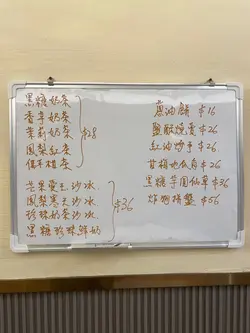 黑糖奶茶
香芋奶茶
茉莉奶茶
鳳梨紅茶
$28
芒果愛玉沙冰
鳳梨寒天沙冰
珍珠奶茶沙冰
黑糖珍珠鮮奶
$36
蔥油餅 $16
鹽酥燒賣 $26
紅油炒手 $26
甘梅地瓜角 $26
黑糖芋圓仙草 $36
炸物拼盤 $56